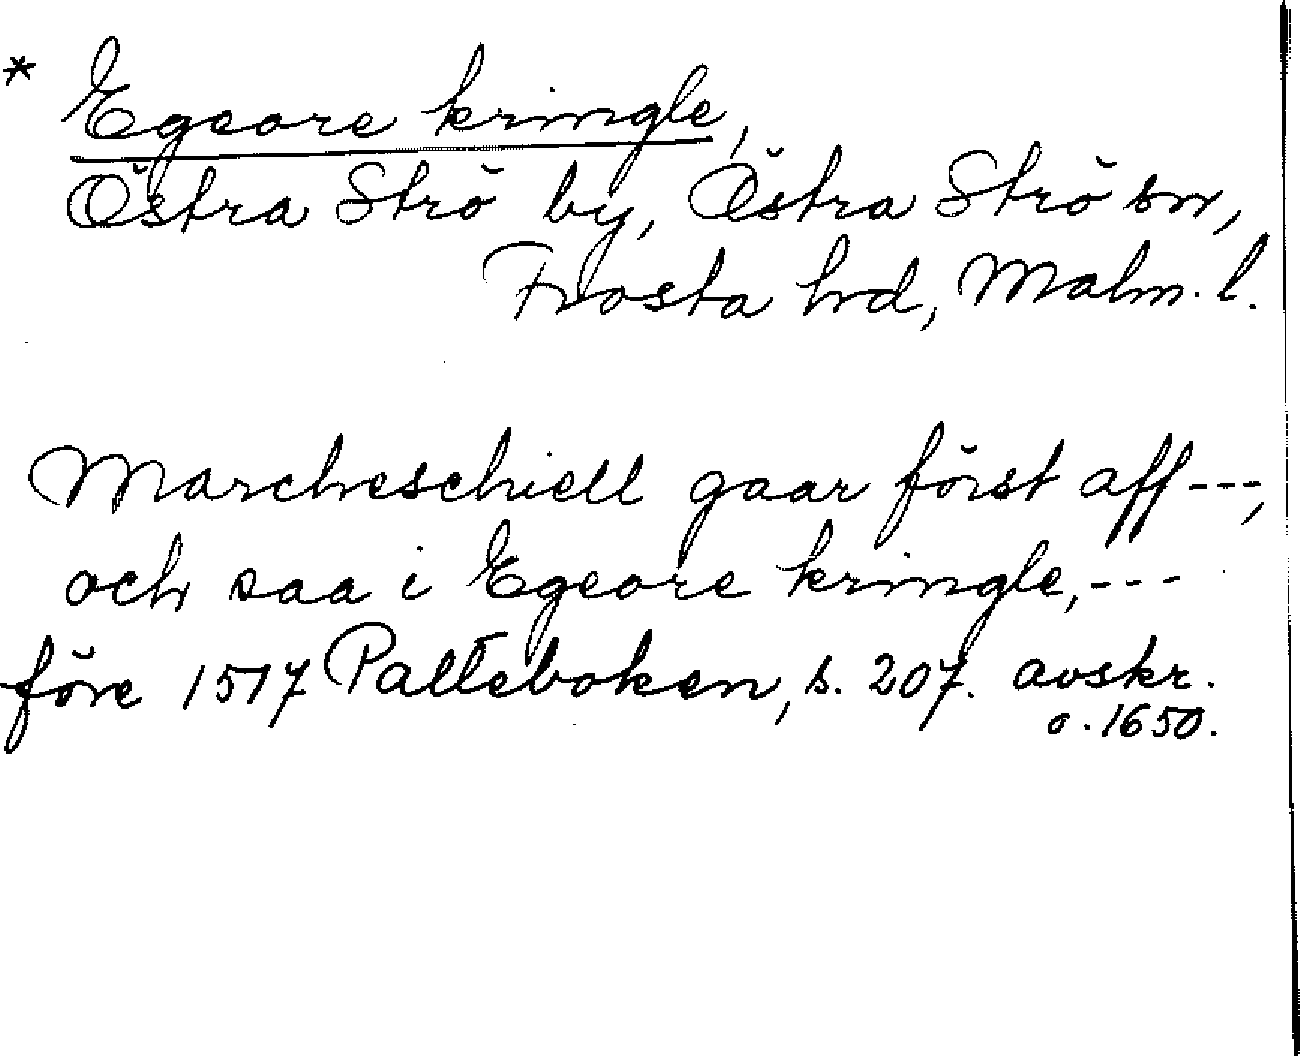 * Egeore kringle,
Östra Strö by, Östra Strö sn,
Frosta hrd, Malm. l.
Marcheschiell gaar först aff ---,
och saa i Egeore kringle, ---
före 1517 Palteboken, s. 207. avskr.
o. 1650.